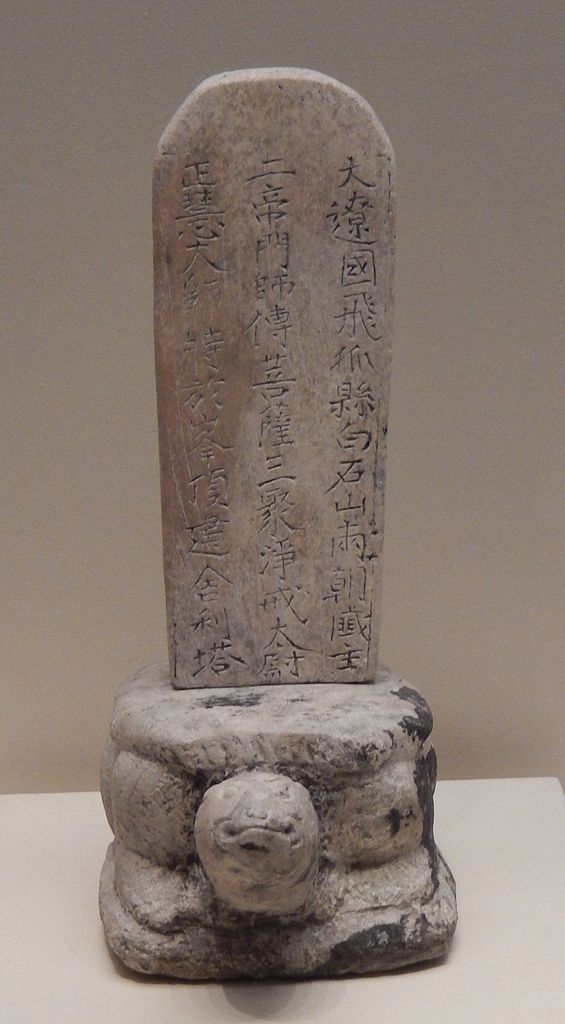 大遼國飛狐縣白石山兩朝國主
二帝門師傳菩薩三聚淨戒太尉
正慧大師特於峯頂建舍利塔